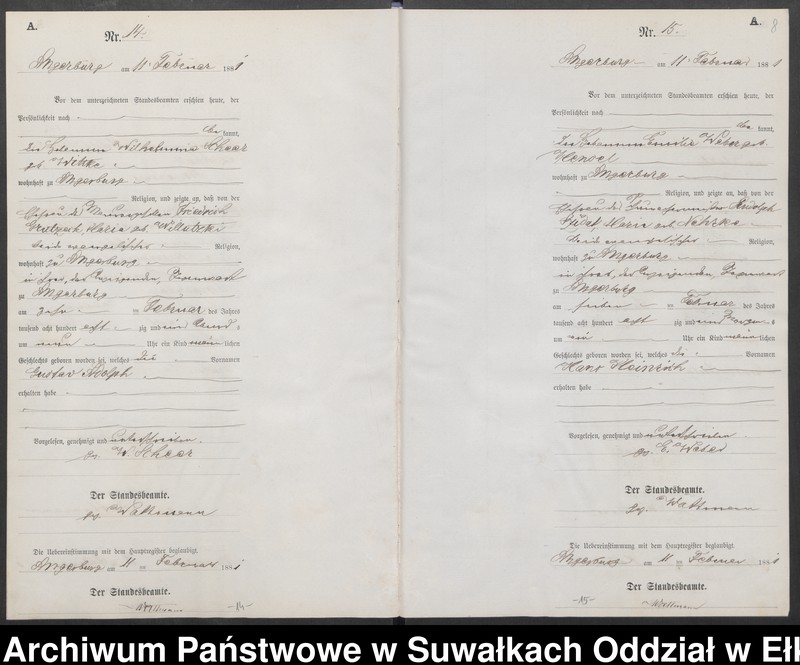 A.
Nr. 14.
Angerburg am 11. Februar 1881
Vor dem unterzeichneten Standesbeamten erschien heute, der
Persönlichkeit nach
kannt,
die Hebamme Wilhelmine Scheer
geb.
wohnhaft zu Angerburg
Religion, und zeigte an, daß von der
Ehefrau des Friedrich
Maria geb.
beide evangelischer Religion,
wohnhaft zu Angerburg
in ihrer, der Anzeigenden, Gegenwart
zu Angerburg
am zehn ten Februar des Jahres
tausend acht hundert acht zig und ein Abend s
um neun Uhr ein Kind männlichen
Geschlechts geboren worden sei, welches die Vornamen
Gustav Adolph
erhalten habe
Vorgelesen, genehmigt und unterschrieben.
gez. W. Scheer
Der Standesbeamte.
gez. Wattmann
Die Uebereinstimmung mit dem Hauptregister beglaubigt.
Angerburg am 11 ten Februar 1881
Der Standesbeamte.
Wattmann
-14-
A. 8
Nr. 15.
Angerburg am 11. Februar 1881
Vor dem unterzeichneten Standesbeamten erschien heute, der
Persönlichkeit nach
kannt,
die Hebamme Emilie Weber geb.
wohnhaft zu Angerburg
Religion, und zeigte an, daß von der
Ehefrau des Rudolph
Maria geb.
beide evangelischer Religion,
wohnhaft zu Angerburg
in ihrer, der Anzeigenden, Gegenwart
zu Angerburg
am sieben ten Februar des Jahres
tausend acht hundert acht zig und ein Morgen s
um ein Uhr ein Kind männlichen
Geschlechts geboren worden sei, welches die Vornamen
Hans Heinrich
erhalten habe
Vorgelesen, genehmigt und unterschrieben.
gez. E. Weber
Der Standesbeamte.
gez. Wattmann
Die Uebereinstimmung mit dem Hauptregister beglaubigt.
Angerburg am 11 ten Februar 1881
Der Standesbeamte.
-15- Wattmann
Archiwum Państwowe w Suwałkach Oddział w Eł